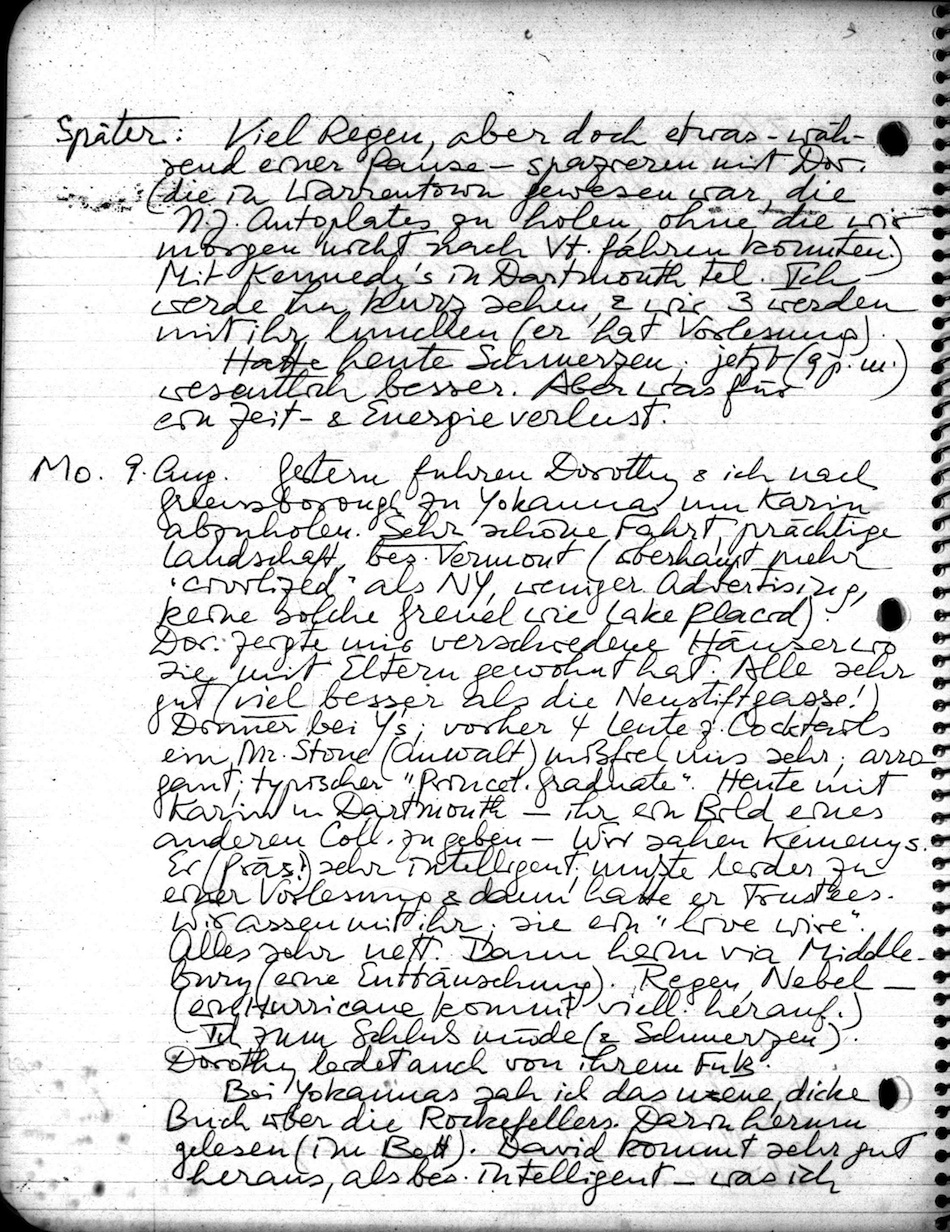 Später: Viel Regen, aber doch etwas – wäh-
rend einer Pause – spazieren mit Dor.
(die in Warrentown gewesen war, die
N.J. Autoplates zu holen, ohne die wir
morgen nicht nach Vt. fahren könnten.)
Mit Kennedy's in Dartmouth tel. Ich
werde ihn kurz sehen, & wir 3 werden
mit ihr lunchen (er hat Vorlesung).
Hatte heute Schmerzen; jetzt (9 p.m.)
wesentlich besser. Aber was für
ein Zeit- & Energieverlust.
Mo. 9. Aug. Gestern fuhren Dorothy & ich nach
Greensborough zu Yokannas um Karin
abzuholen. Sehr schöne Fahrt, prächtige
Landschaft, bes. Vermont (überhaupt mehr
"civilized" als NY, weniger Advertising,
keine solche Greuel wie Lake Placid).
Dor. zeigte mir verschiedene Häuser wo
sie mit Eltern gewohnt hat. Alle sehr
gut (viel besser als die Neustiftgasse!)
Dinner bei Y's; vorher 4 Leute z. Cocktails
ein Mr. Stone (Anwalt) mißfiel uns sehr; arro-
gant; typischer "Princet. graduate". Heute mit
Karin in Dartmouth – ihr ein Bild eines
anderen Coll. zu geben – Wir sahen Kemenys.
Er (Präs!) sehr intelligent; mußte leider zu
einer Vorlesung & dann hatte er Trustees.
Wir assen mit ihr; sie ein "live wire".
Alles sehr nett. Dann heim via Middle-
bury (eine Enttäuschung). Regen, Nebel –
(ein Hurricane kommt viell. herauf.)
Ich zum Schluß müde (& Schmerzen).
Dorothy leidet auch von ihrem Fuß.
Bei Yokannas sah ich das neue, dicke
Buch über die Rockefellers. Darin herum
gelesen (im Bett). David kommt sehr gut
heraus, als bes. intelligent – was ich